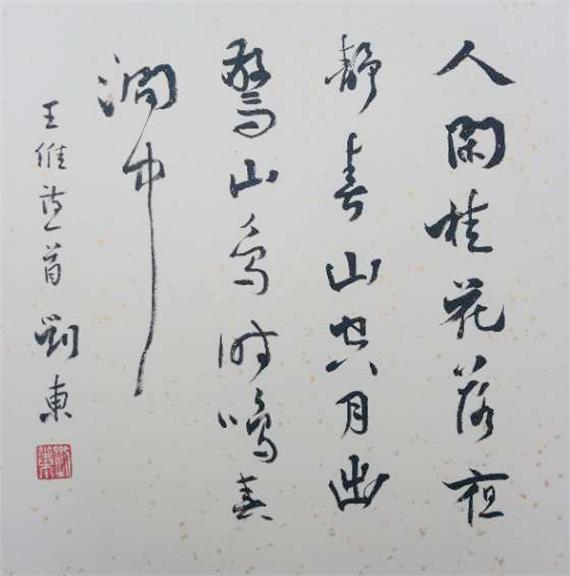 人閑桂花落夜
靜春山空月出
驚山鳥時鳴春
澗中
王維詩一首 劉東